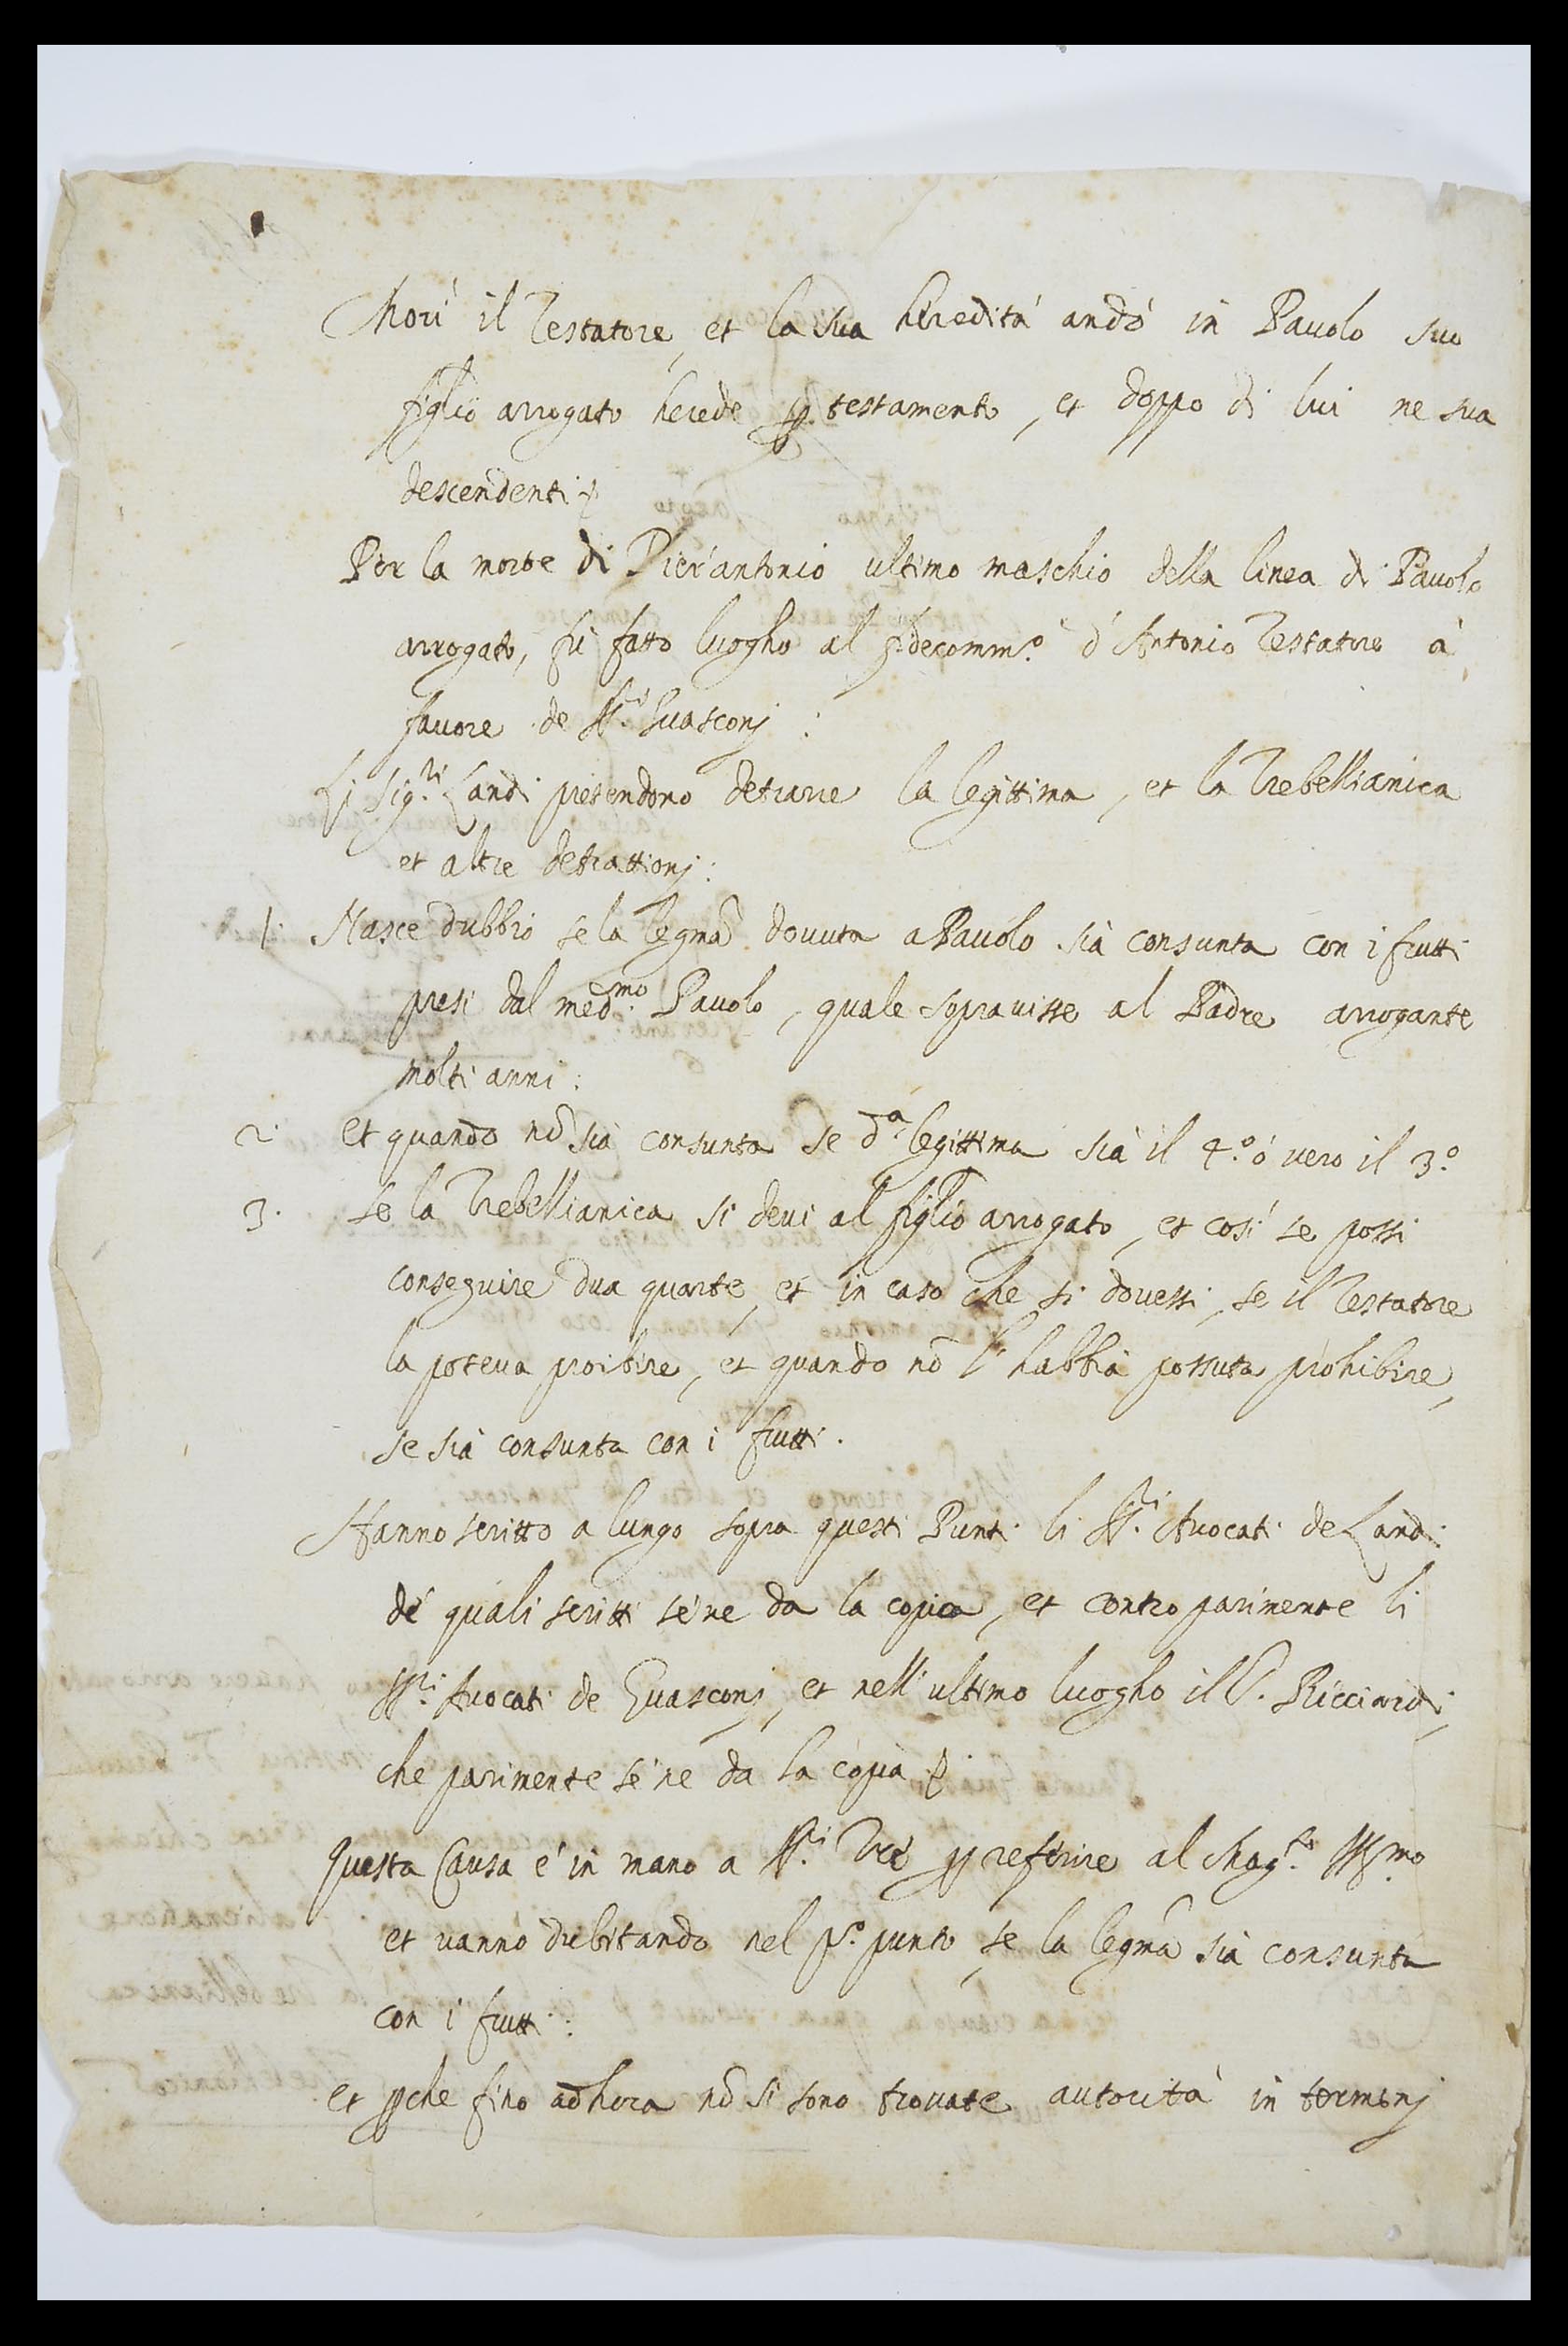 Morì il Testatore, et la sua heredità andò in Pauolo suo
figlio arrogato herede p. testamento, et doppo di lui ne sua
descendenti
Per la morte di Pier'antonio ultimo maschio della linea di Pauolo
arrogato, fù fatto luogho al fidecomm.o d'Antonio Testatore à
fauore de SS.ri Guasconj :
Li Sig.ri Landi pretendono detrarre la legittima, et la Trebellianica
et altre detrattionj :
1. Nasce dubbio se la legma douuta a Pauolo sia consunta con i frutti
presi dal med.mo Pauolo, quale soprauisse al Padre arrogante
molti anni :
2. et quando nõ sia consunta se d.a legittima sia il 4.o ò uero il 3.o
3. se la Trebellianica si deui al figlio arrogato, et così se possi
conseguire dua quarte, et in caso che si douessi, se il Testatore
la poteua proibire, et quando nõ l'habbia possuta prohibire,
se sia consunta con i frutti.
Hanno scritto a lungo sopra questi Punti li SS.ri Auocati de Landi
de quali scritti se ne da la copia, et contro parimente li
SS.ri Auocati de Guasconj, et nell'ultimo luogho il S. Ricciardi,
che parimente se ne da la copia
Questa Causa è in mano a SS.ri Tre p referire al Mag.to SS.mo
et uanno dubitando nel p.o punto, se la legma sia consunta
con i frutti :
et pche fino adhora nõ si sono trouate autorità in terminj